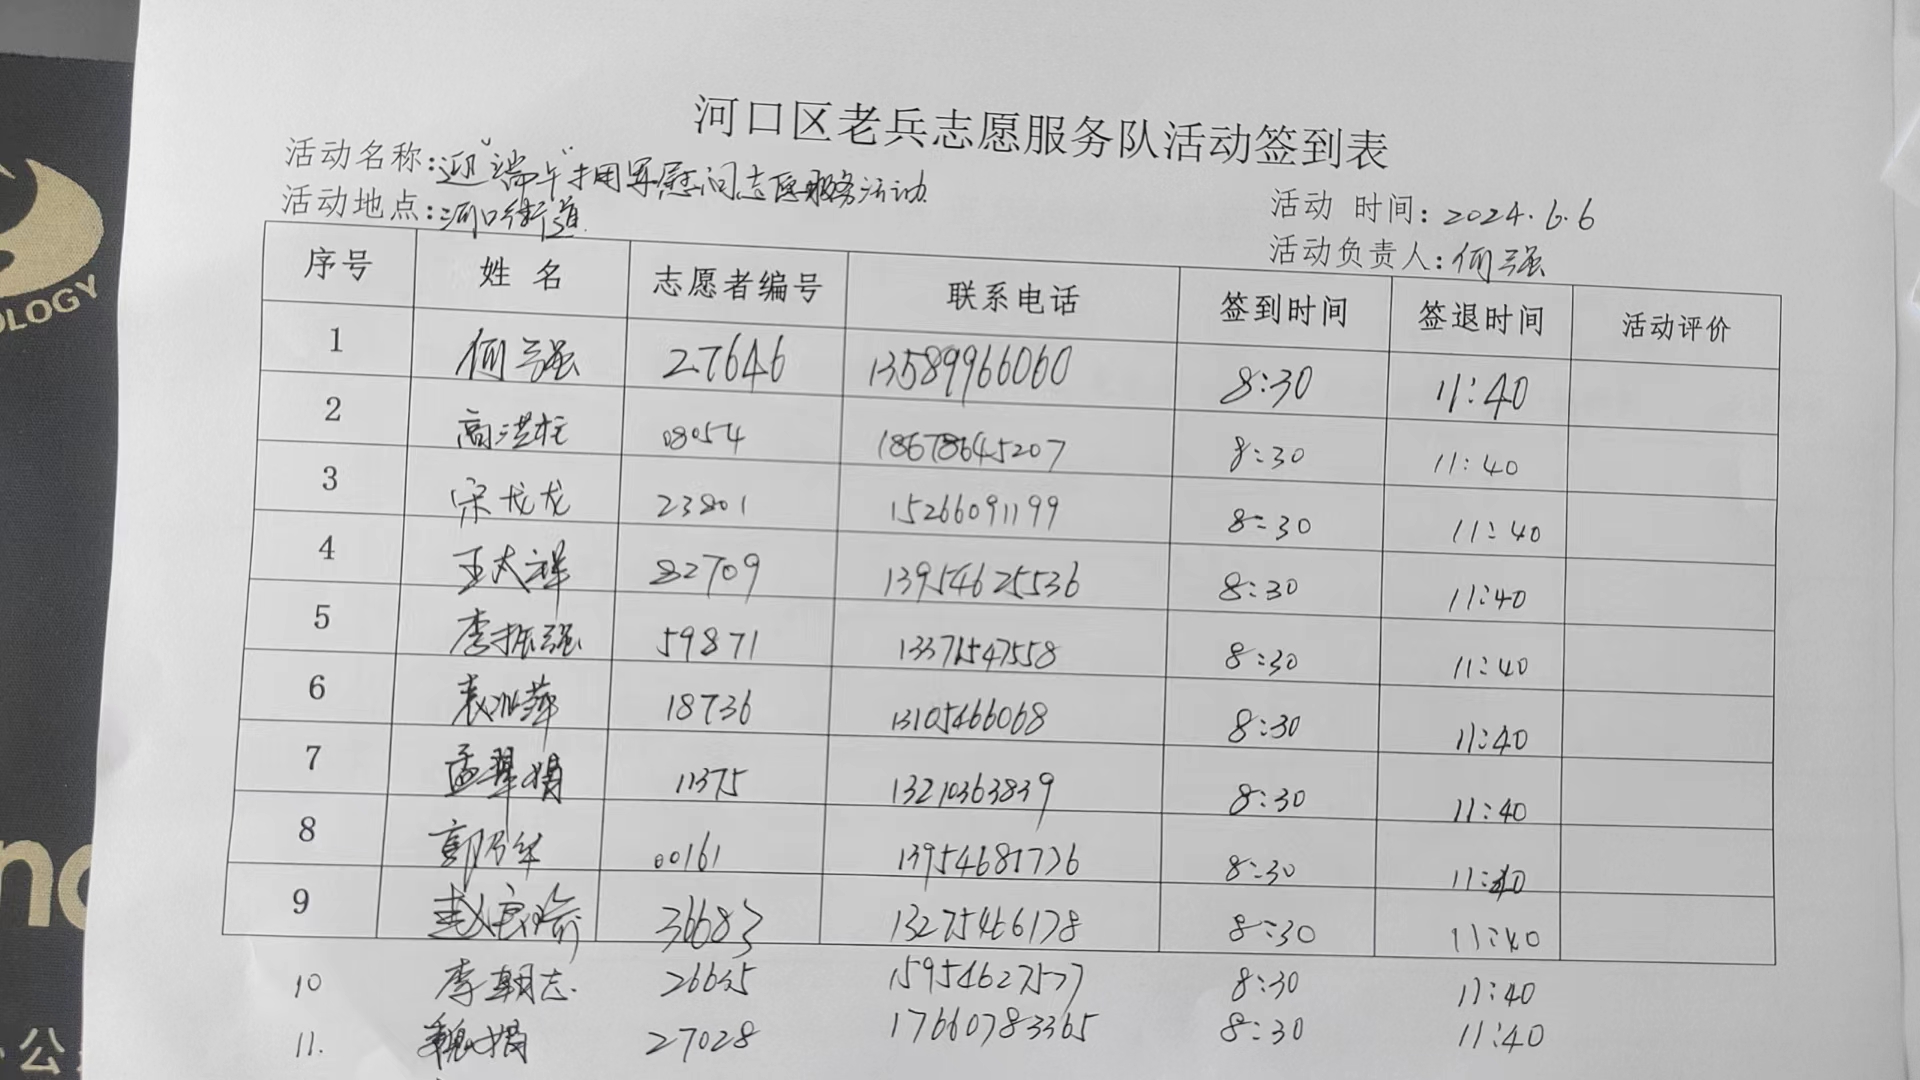 河口区老兵志愿服务队活动签到表
活动名称:迎"端午"拥军慰问志愿服务活动
活动地点:河口街道
活动 时间:2024.6.6
活动负责人:何强
序号 姓名 志愿者编号 联系电话 签到时间 签退时间 活动评价
1 何强 27646 13589966060 8:30 11:40
2 高洪柱 08054 18678645207 8:30 11:40
3 宋龙龙 23801 15266091199 8:30 11:40
4 王太祥 82709 13954625536 8:30 11:40
5 李振强 59871 13371547558 8:30 11:40
6 袁 萍 18736 13105466068 8:30 11:40
7 孟翠娟 11375 13210363839 8:30 11:40
8 郭乃华 00161 13954681776 8:30 11:40
9 赵 36683 13275466178 8:30 11:40
10 李朝志 26635 15954627577 8:30 11:40
11. 魏娟 27028 17660783365 8:30 11:40
OLOGY
公